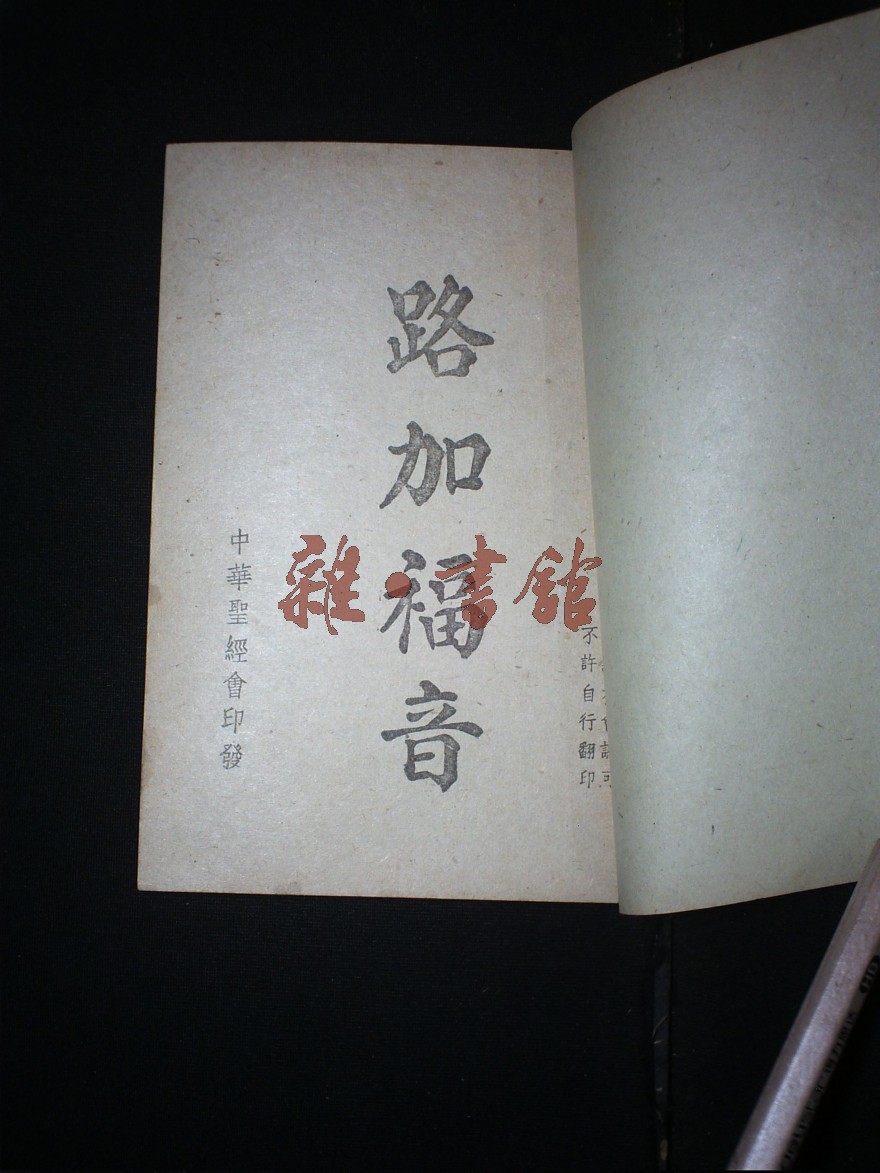 不許自行翻印
路加福音
中華聖經會印發
雜·書館